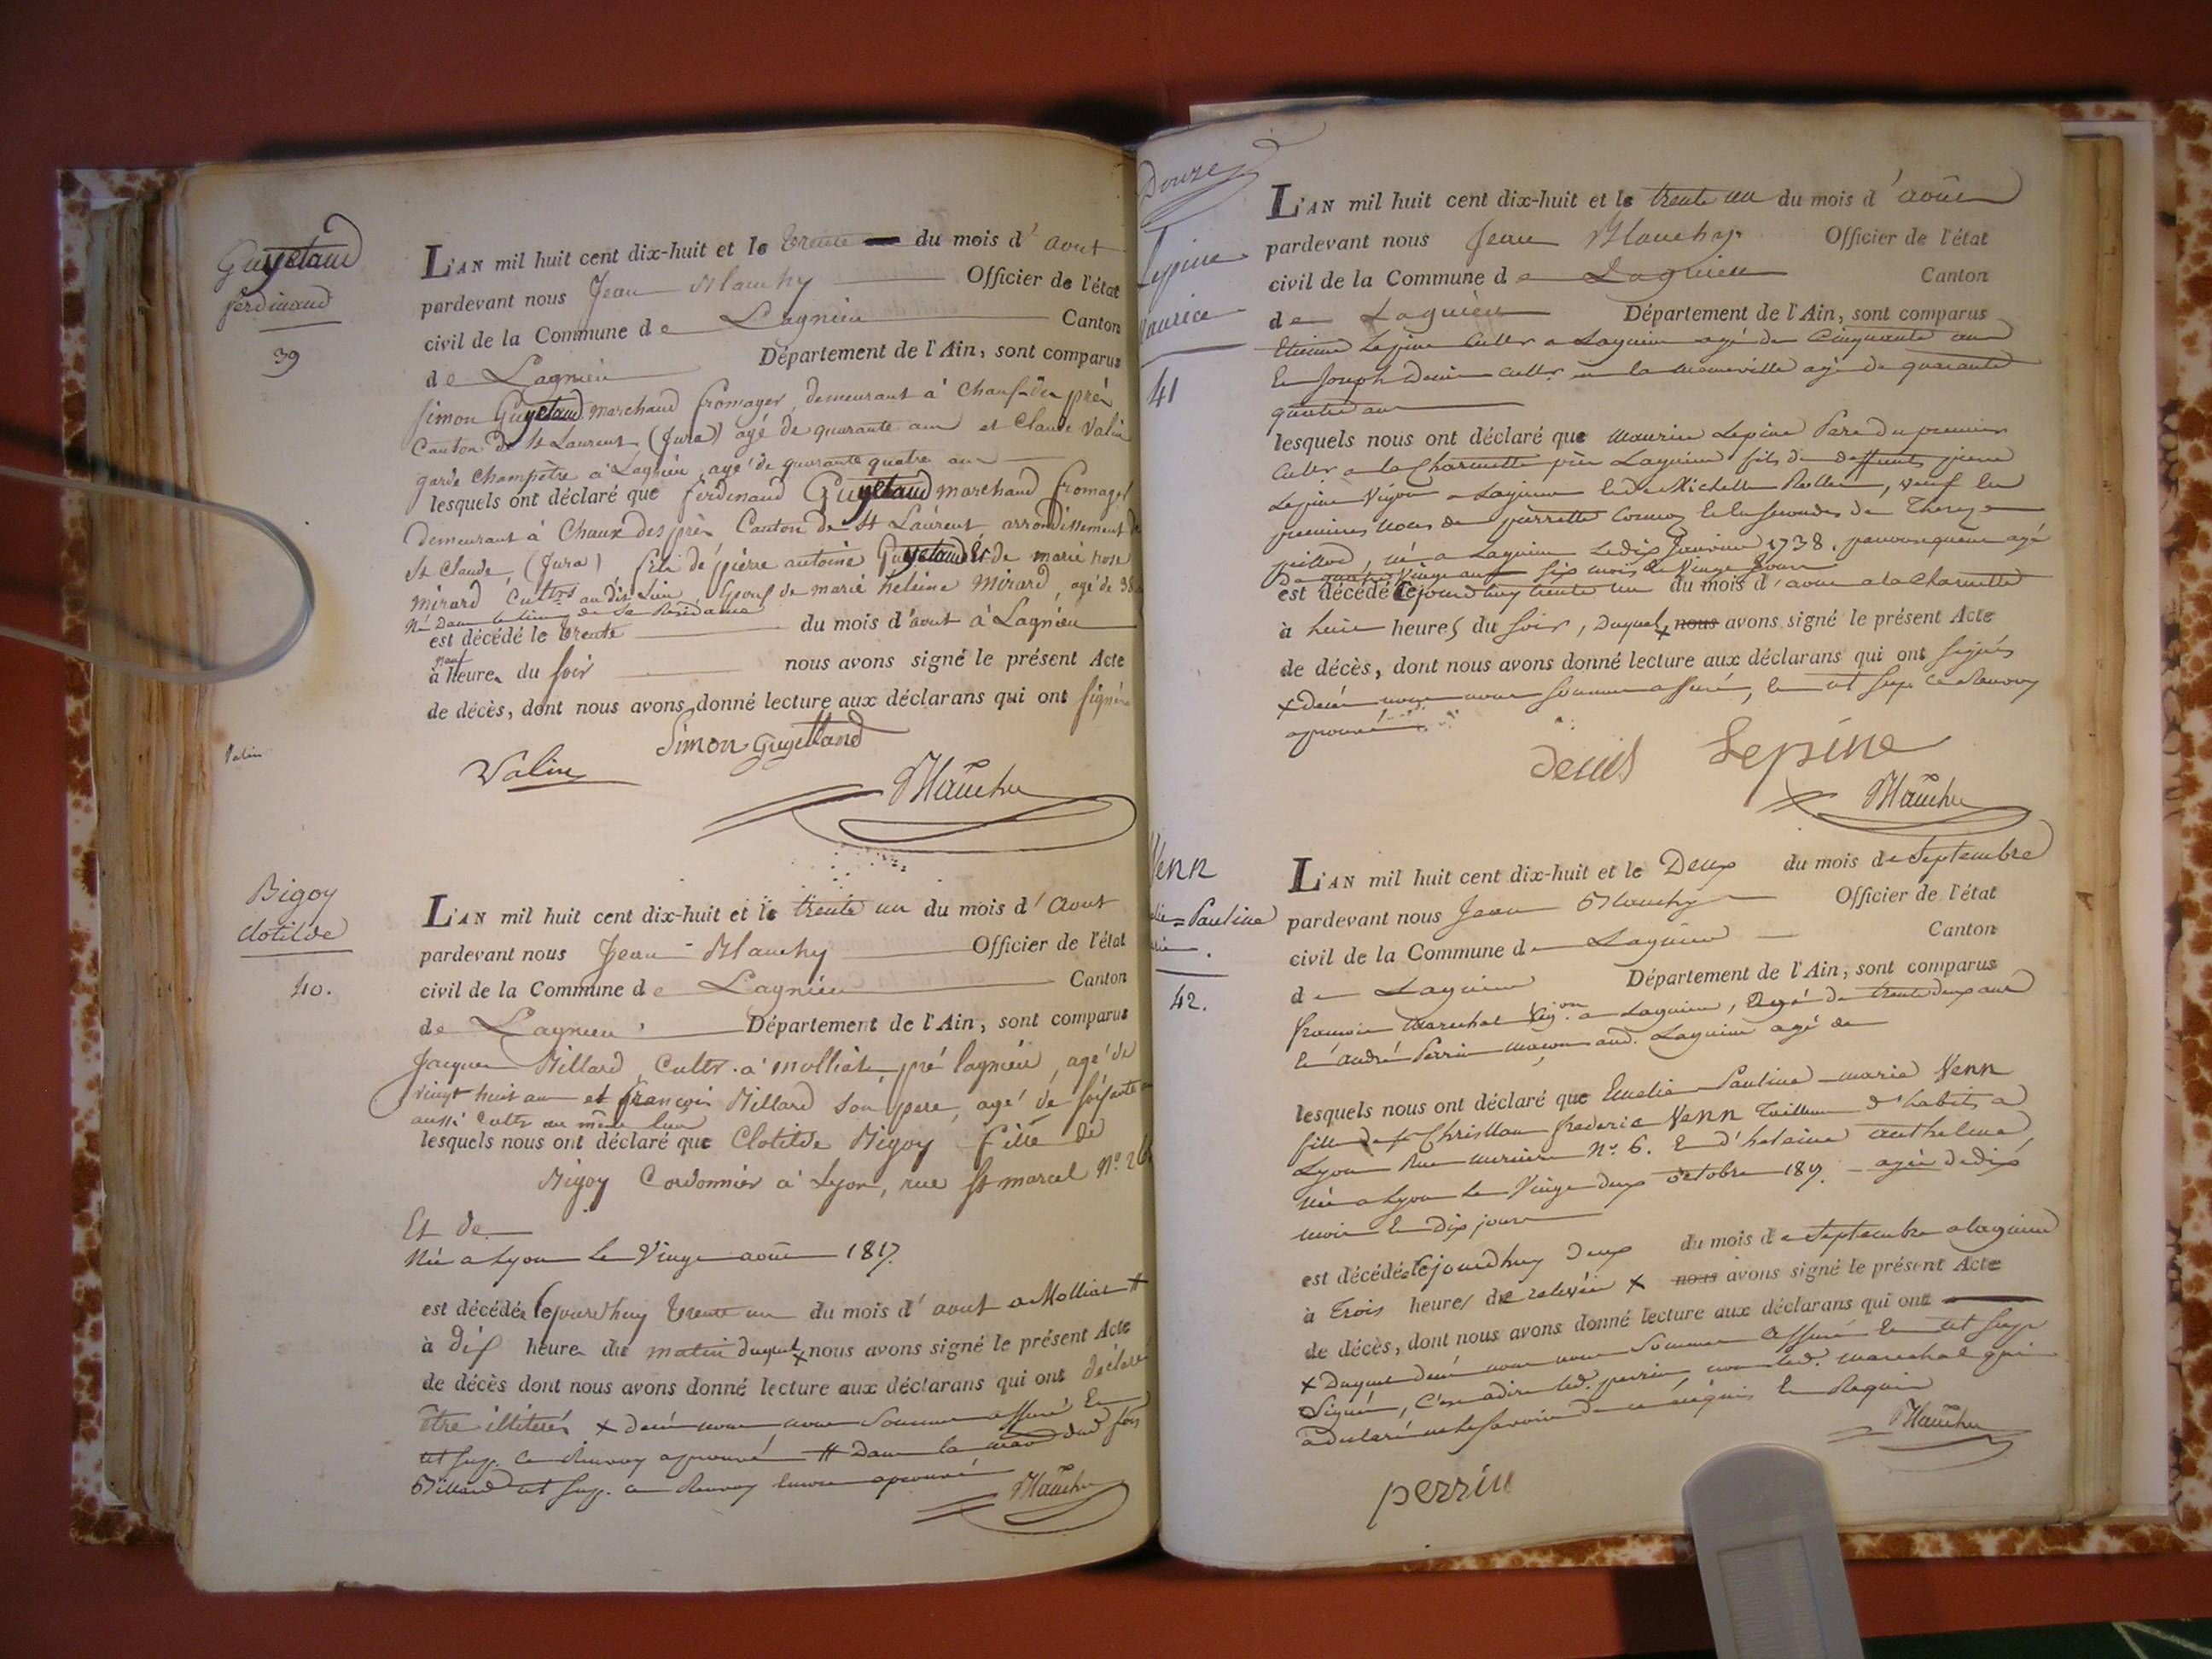 Guyetaud
ferdinand
39
L'AN mil huit cent dix-huit et le trente du mois d'aout
pardevant nous Jean Blanchy Officier de l'état
civil de la Commune de Lagnieu Canton
de Lagnieu Département de l'Ain, sont comparus
Simon Guyetaud marchand fromager demeurant à Chaux des près
Canton de St Laurent (Jura) agé de quarante ans et Claude Valin
garde champêtre à Lagnieu agé de quarante quatre ans
lesquels ont déclaré que ferdinand Guyetaud marchand fromager
demeurant à Chaux des près Canton de St Laurent arrondissement de
St Claude (Jura) fils de pierre antoine Guyetaud et de marie rose
Mirard Cultrs au dit Lieu Epoux de marie heleine Mirard, agé de 38
Né Dans le lieu de Sa Residance
est décédé le trente du mois d'aout à Lagnieu
à neuf heures du soir nous avons signé le présent Acte
de décès, dont nous avons donné lecture aux déclarans qui ont signé
Simon Guyettand
Valin
Valin
Blanchy
Bigoy
Clotilde
40.
L'AN mil huit cent dix-huit et le trente un du mois d'Aout
pardevant nous Jean Blanchy Officier de l'état
civil de la Commune de Lagnieu Canton
de Lagnieu Département de l'Ain, sont comparus
Jacques Billard, Cultr. à Molliat, pré lagnieu, agé de
vingt huit ans et françois Billard son pere, agé de soisante
aussi Cultr au même lieu
lesquels nous ont déclaré que Clotilde Bigoy fille de
Bigoy Cordonnier à Lyon, rue St marcel No. 26
Et de
Née a Lyon le Vingt août 1817.
est décédée cejourdhuy trente un du mois d'aout a Molliat #
à dix heures du matin duquel x nous avons signé le présent Acte
de décès dont nous avons donné lecture aux déclarans qui ont déclaré
être illiterés x decès nous nous sommes assuré
ut sup. ce Renvoy aprouvé # Dans la maison dud. fois
Billard ut sup. ce Renvoy encore aprouvé
Blanchy
Douze
Lepine
Maurice
41
L'AN mil huit cent dix-huit et le trente un du mois d'août
pardevant nous Jean Blanchy Officier de l'état
civil de la Commune de Lagnieu Canton
de Lagnieu Département de l'Ain, sont comparus
Etienne Lepine Cultr a Lagnieu agé de Cinquante ans
Et Joseph Denis Cultr. agé de quarante
quatre ans
lesquels nous ont déclaré que Maurice Lepine Pere du premier
Cultr a la Charnette près Lagnieu fils de deffunts pierre
Lepine Vigon a Lagnieu et de Michelle, veuf en
premieres noces de pierrette et en secondes de Therese
né a Lagnieu Le dix Janvier 1738. agé
De quatre Vingt ans six mois Vingt Jours
est décédé Cejourdhuy trente un du mois d'aout a la Charnette
à huit heures du soir, Duquel x nous avons signé le présent Acte
de décès, dont nous avons donné lecture aux déclarans qui ont signés
x decès nous nous sommes assuré, ut sup. ce Renvoy
aprouvé
denis Lepine
Blanchy
Venn
Pauline
42.
L'AN mil huit cent dix-huit et le Deux du mois de Septembre
pardevant nous Jean Blanchy Officier de l'état
civil de la Commune de Lagnieu Canton
de Lagnieu Département de l'Ain, sont comparus
françois Marechal Vigon a Lagnieu, agé de trente deux ans
Et andré Perrin maçon aud. Lagnieu agé de
lesquels nous ont déclaré que Emelie Pauline marie Venn
fille de Christian frederic Venn Tailleur d'habits a
Lyon Rue merciere No. 6. Et d'heleine anthelme
Née a Lyon Le Vingt deux octobre 181. agée de dix
mois Et Dix jours
est décédée Cejourdhuy deux du mois de Septembre a lagnieu
à Trois heures de relevée x nous avons signé le présent Acte
de décès, dont nous avons donné lecture aux déclarans qui ont
x Duquel decès nous nous sommes assuré ut sup.
Signé, C'est adire led. perrin, non led. marechal qui
a declaré ne le savoir de ce enquis Et Requis
Blanchy
perrin